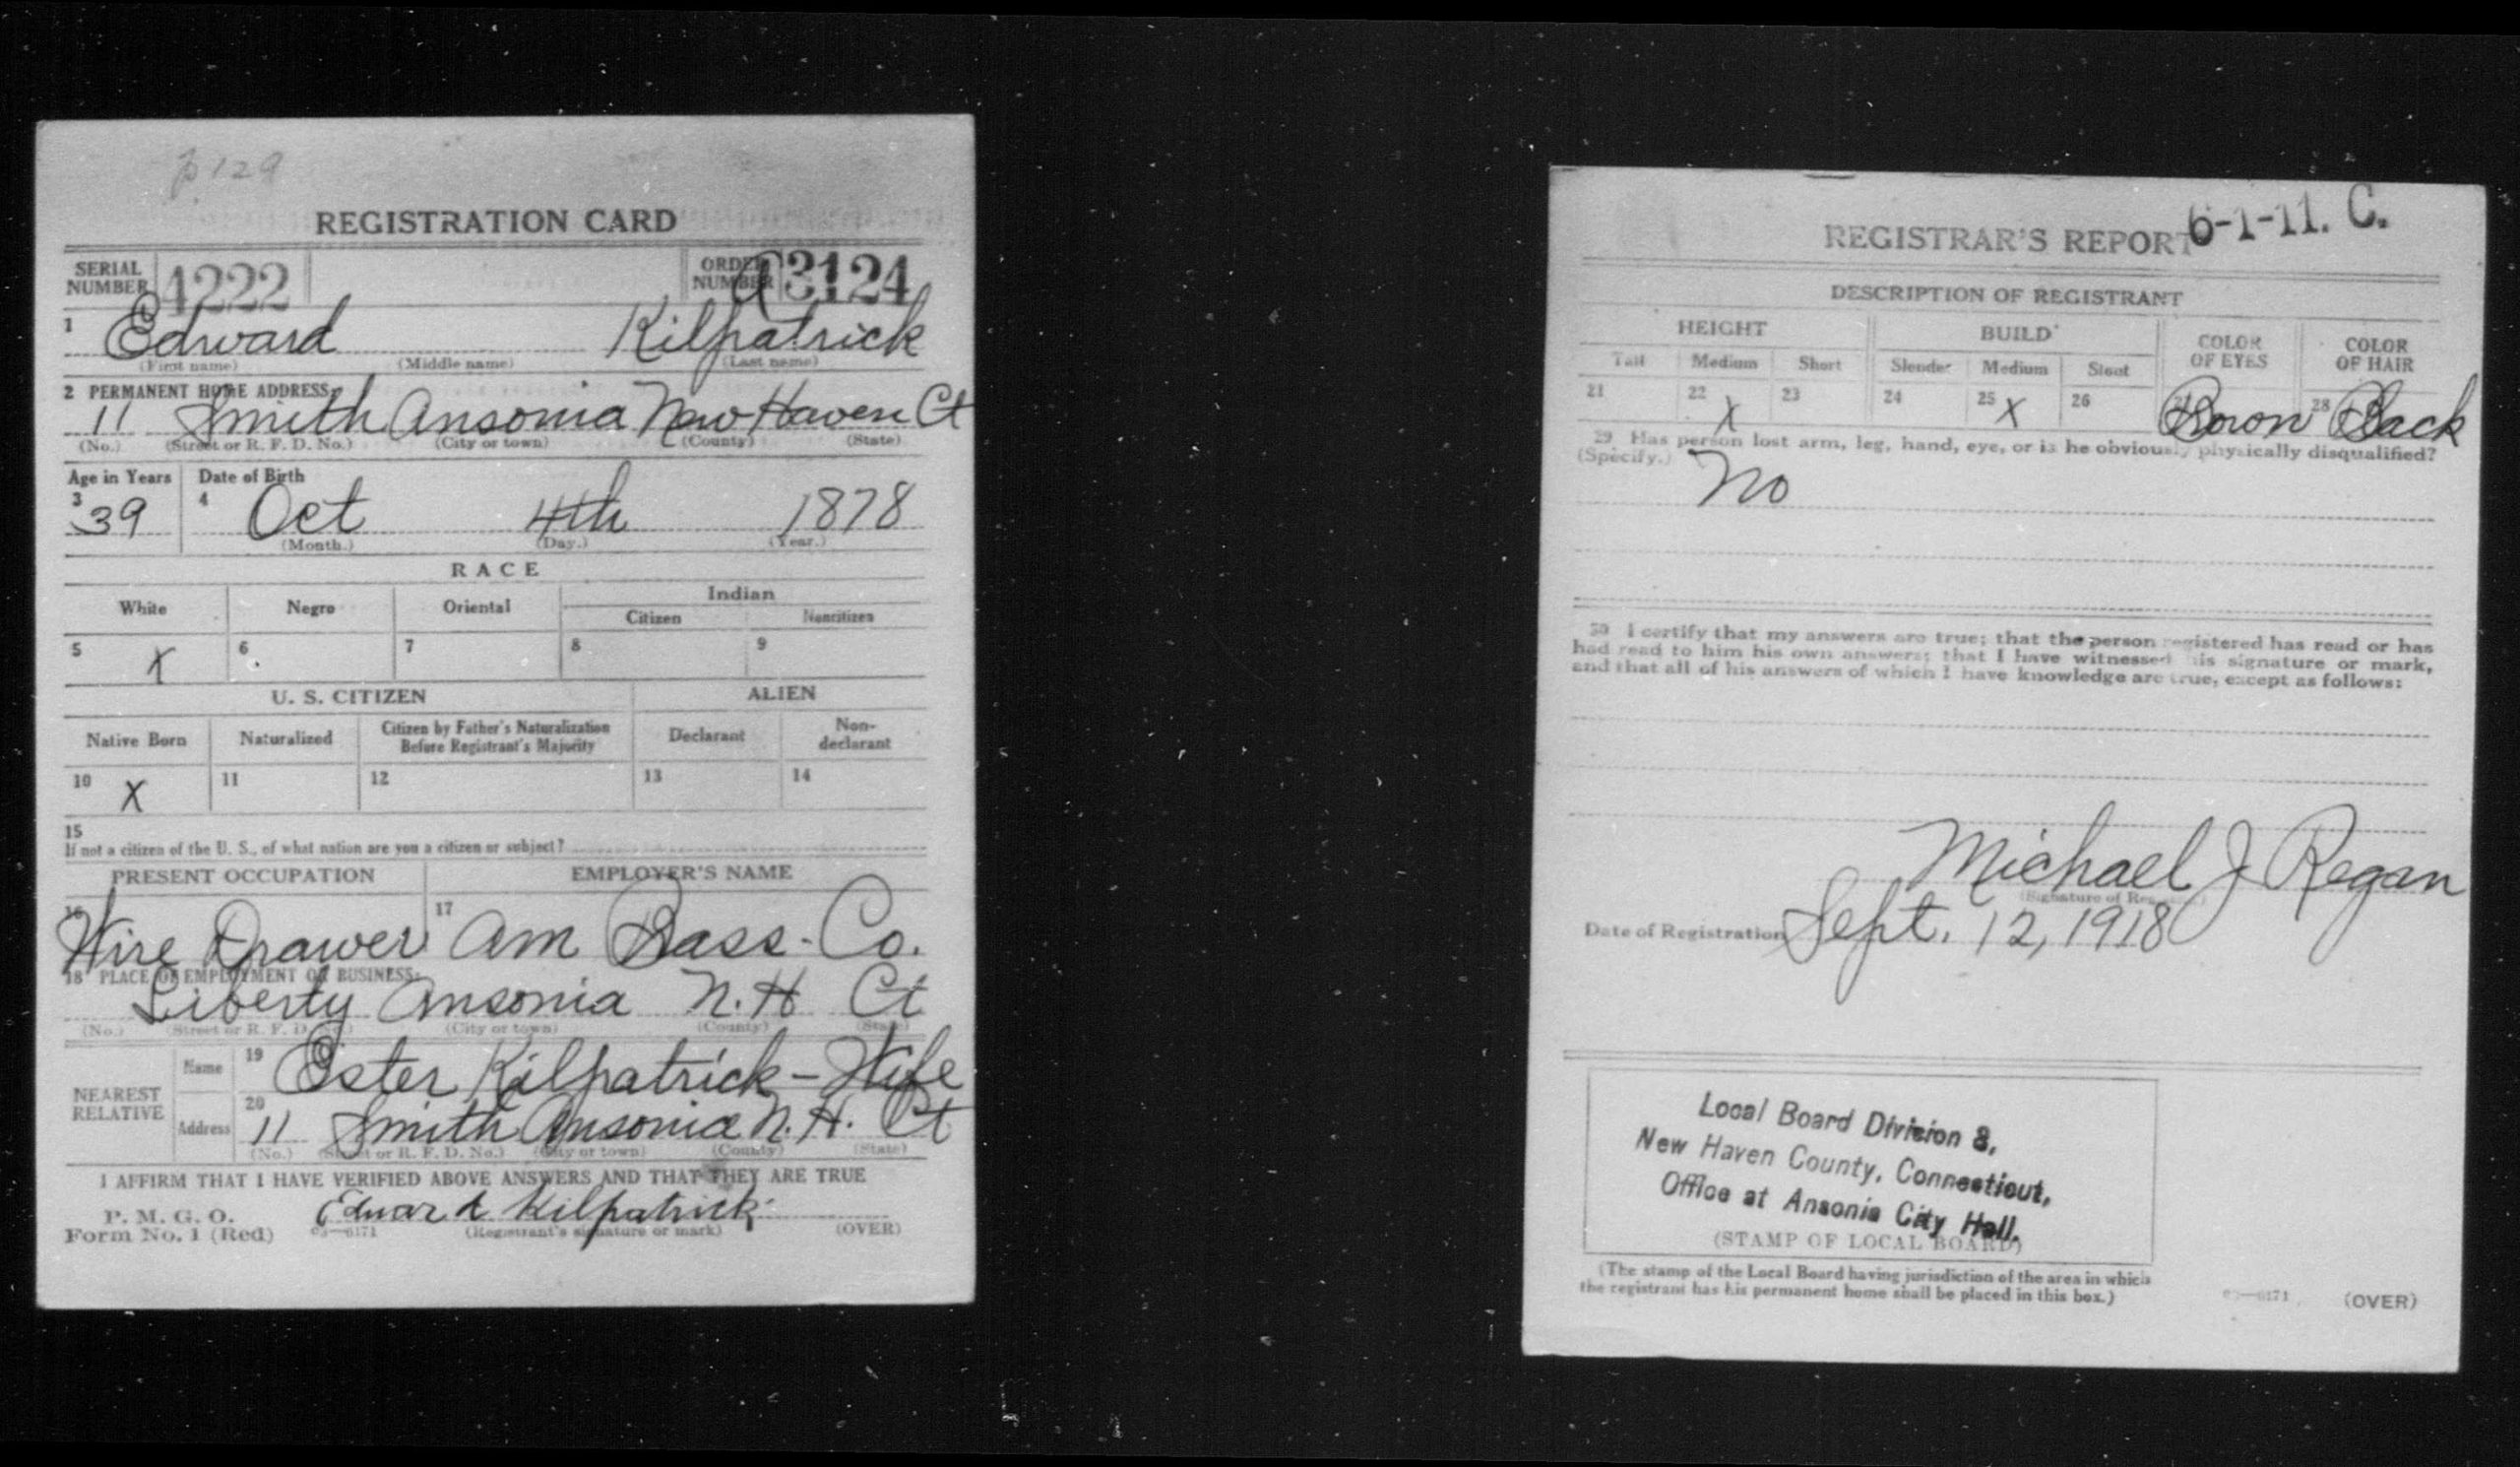 p 129
REGISTRATION CARD
SERIAL NUMBER 4222 ORDER NUMBER A 3124
1 Edward Kilpatrick
(First name) (Middle name) (Last name)
2 PERMANENT HOME ADDRESS:
11 Smith Ansonia New Haven Ct
(No.) (Street or R. F. D. No.) (City or town) (County) (State)
Age in Years Date of Birth
3 39 4 Oct 4th 1878
(Month.) (Day.) (Year.)
RACE
White Negro Oriental Indian
Citizen Noncitizen
5 X 6 7 8 9
U. S. CITIZEN ALIEN
Native Born Naturalized Citizen by Father's Naturalization Before Registrant's Majority Declarant Non-declarant
10 X 11 12 13 14
15
If not a citizen of the U. S., of what nation are you a citizen or subject?
PRESENT OCCUPATION EMPLOYER'S NAME
16 Wire Drawer 17 Am Brass Co.
18 PLACE OF EMPLOYMENT OR BUSINESS:
Liberty Ansonia N. H Ct
(No.) (Street or R. F. D. No.) (City or town) (County) (State)
NEAREST RELATIVE Name 19 Ester Kilpatrick - Wife
Address 20 11 Smith Ansonia N. H. Ct
(No.) (Street or R. F. D. No.) (City or town) (County) (State)
I AFFIRM THAT I HAVE VERIFIED ABOVE ANSWERS AND THAT THEY ARE TRUE
P. M. G. O.
Form No. 1 (Red) 03—6171 Edward Kilpatrick
(Registrant's signature or mark) (OVER)
6-1-11. C.
REGISTRAR'S REPORT
DESCRIPTION OF REGISTRANT
HEIGHT BUILD COLOR OF EYES COLOR OF HAIR
Tall Medium Short Slender Medium Stout
21 22 X 23 24 25 X 26 27 Brown 28 Black
29 Has person lost arm, leg, hand, eye, or is he obviously physically disqualified?
(Specify.) No
30 I certify that my answers are true; that the person registered has read or has
had read to him his own answers; that I have witnessed his signature or mark,
and that all of his answers of which I have knowledge are true, except as follows:
Michael J Regan
(Signature of Registrar)
Date of Registration Sept. 12, 1918
Local Board Division 8,
New Haven County, Connecticut,
Office at Ansonia City Hall.
(STAMP OF LOCAL BOARD)
(The stamp of the Local Board having jurisdiction of the area in which
the registrant has his permanent home shall be placed in this box.)
03—6171 (OVER)